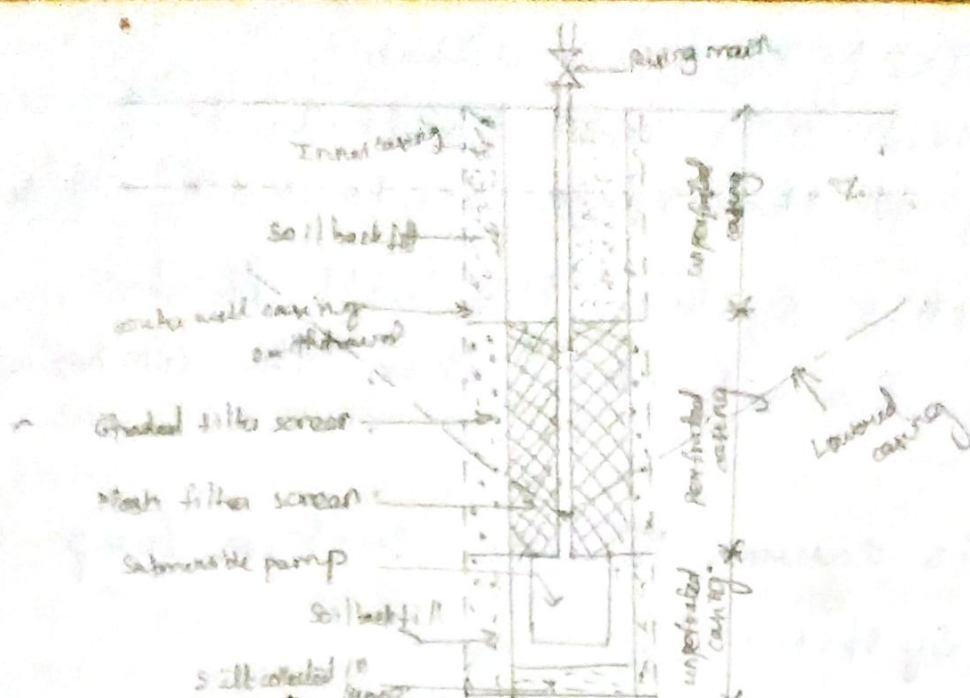 Rising main
Inner casing
Soil backfill
outer well casing
withdrawal
Graded filter screen
Mesh filter screen
Submersible pump
Soil backfill
Silt collected in
unperforated
casing
perforated
casing
unperforated
casing
Lowered
casing